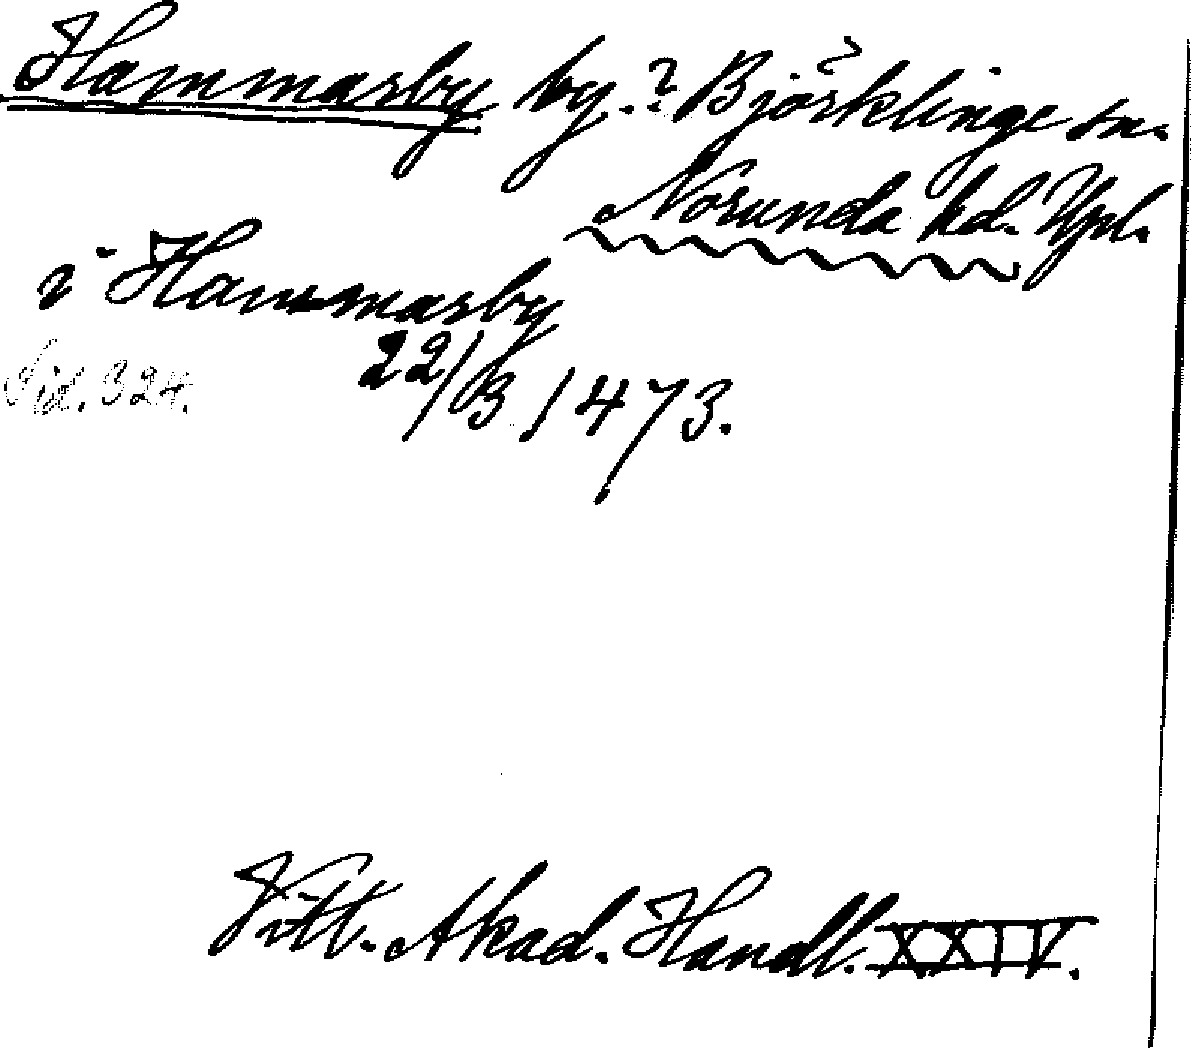 Hammarby by.? Björklinge sn.
Norunda hd. Upl.
i Hammarby
22/3 1473.
Sid. 324.
Vitt. Akad. Handl. XXIV.